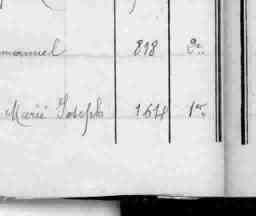 manuel 818 2e
Marie Joseph 1618 1er